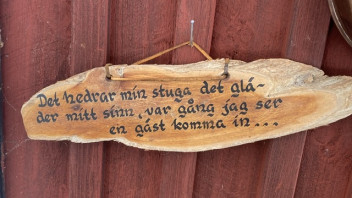 Det hedrar min stuga det glä-
der mitt sinn, var gång jag ser
en gäst komma in...